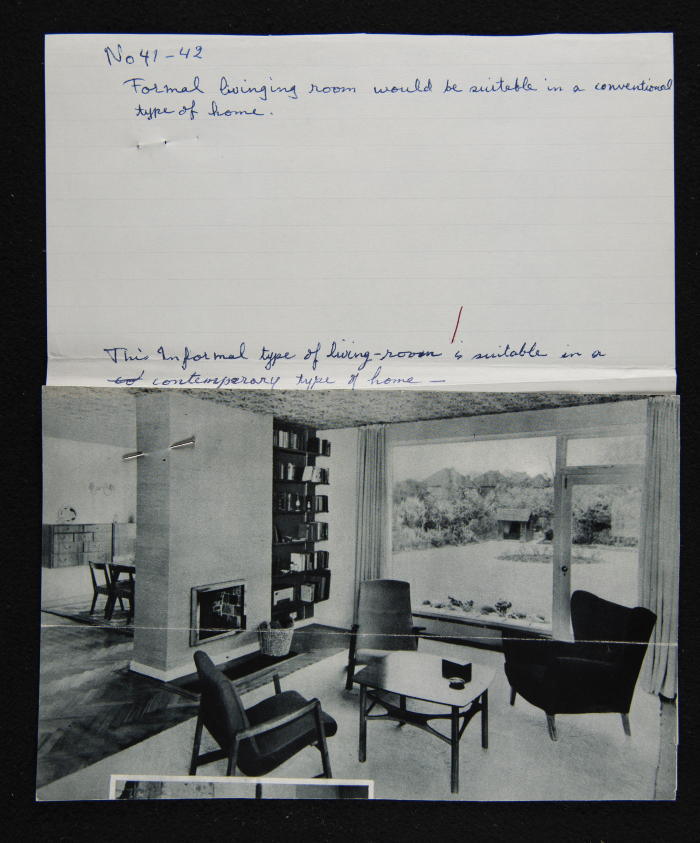 No 41-42
Formal livinging room would be suitable in a conventional
type of home.
This Informal type of living-room is suitable in a
contemperary type of home —